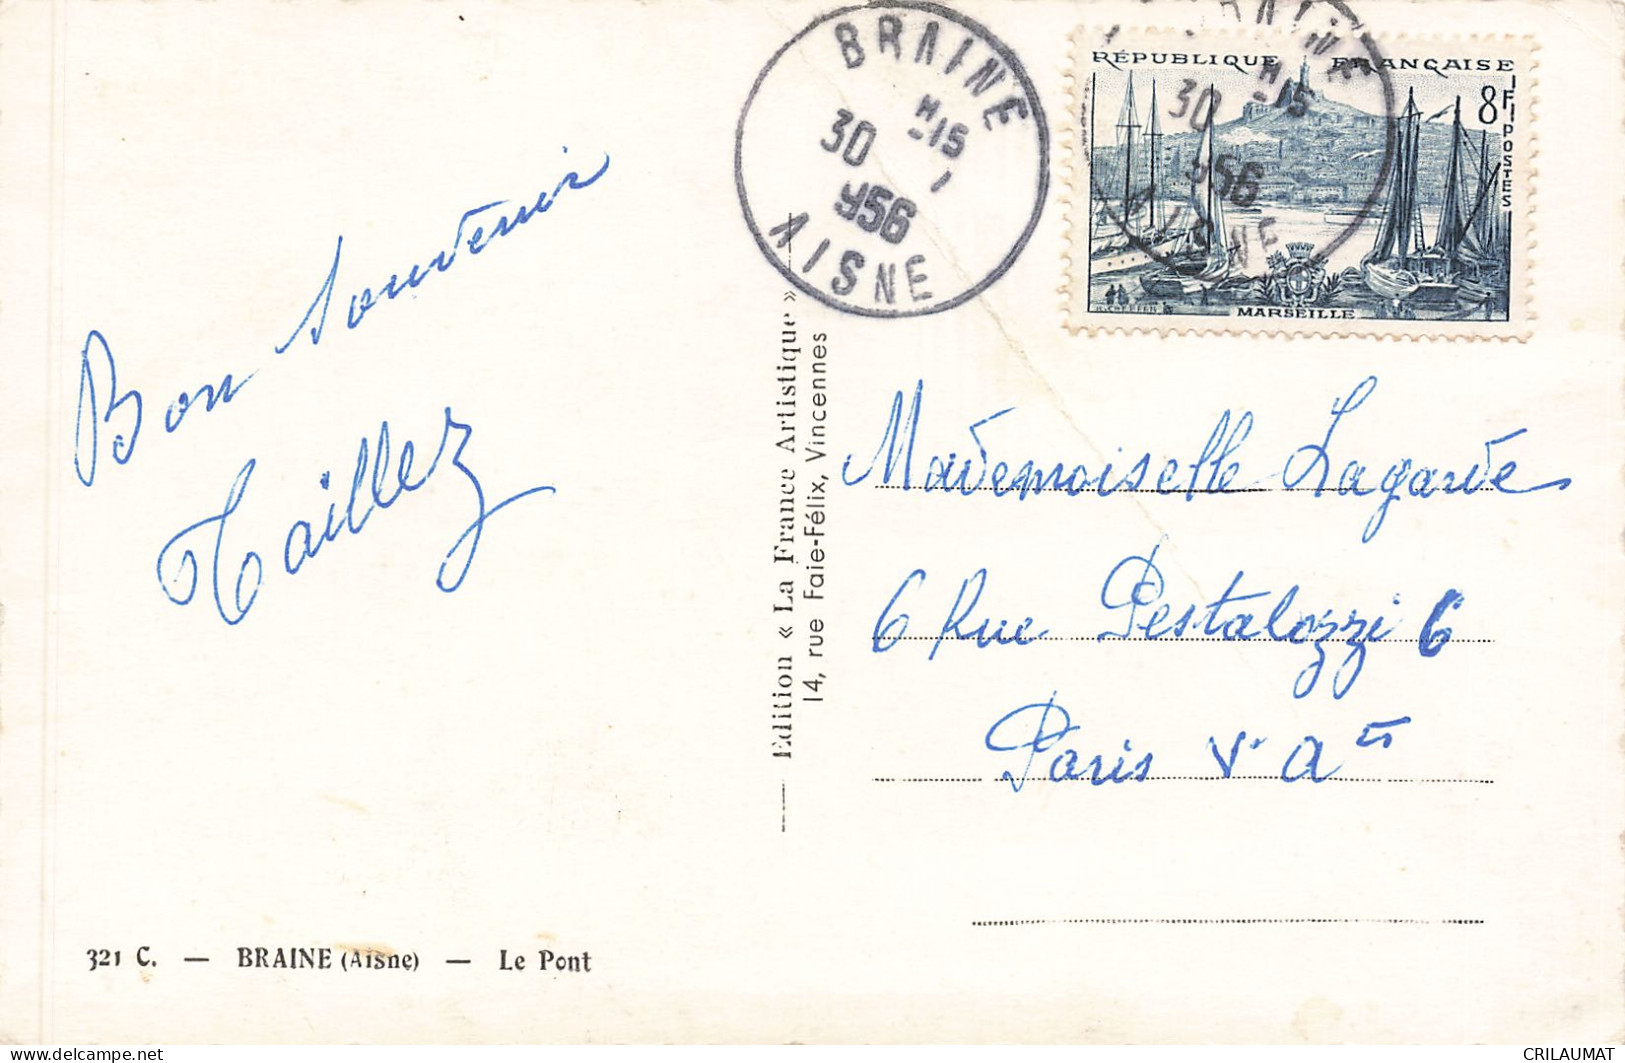 BRAINE
H15
30 - 1
1956
AISNE
BRAINE
H15
30
1956
AISNE
RÉPUBLIQUE FRANÇAISE
8F
POSTES
MARSEILLE
Bon Souvenir
Taillez
Edition « La France Artistique »
14, rue Faie-Félix, Vincennes
Mademoiselle Lagarde
6 Rue Pestalozzi 6
Paris V. Aᵗ
321 C. — BRAINE (Aisne) — Le Pont
CRILAUMAT